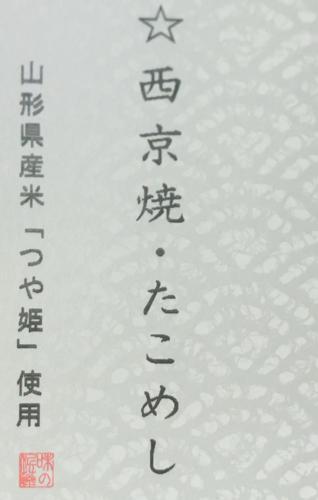 ☆西京焼・たこめし
山形県産米「つや姫」使用
味の